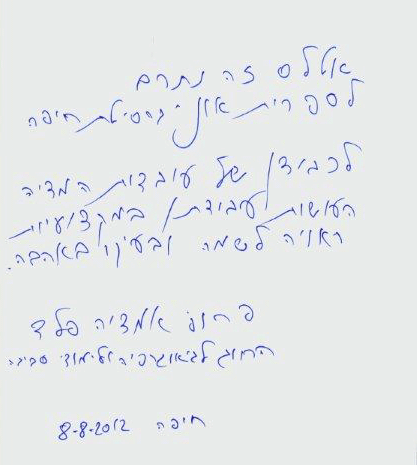 אטלס זה נתרם
לספרית אוניברסיטת חיפה
לכבודן של עובדות המדיה
העושות עבודתן במקצועיות
ראויה לשמה ובעיקר באהבה.
אמציה פלד
החוג לגיאוגרפיה ולימודי סביבה
חיפה 8-8-2012